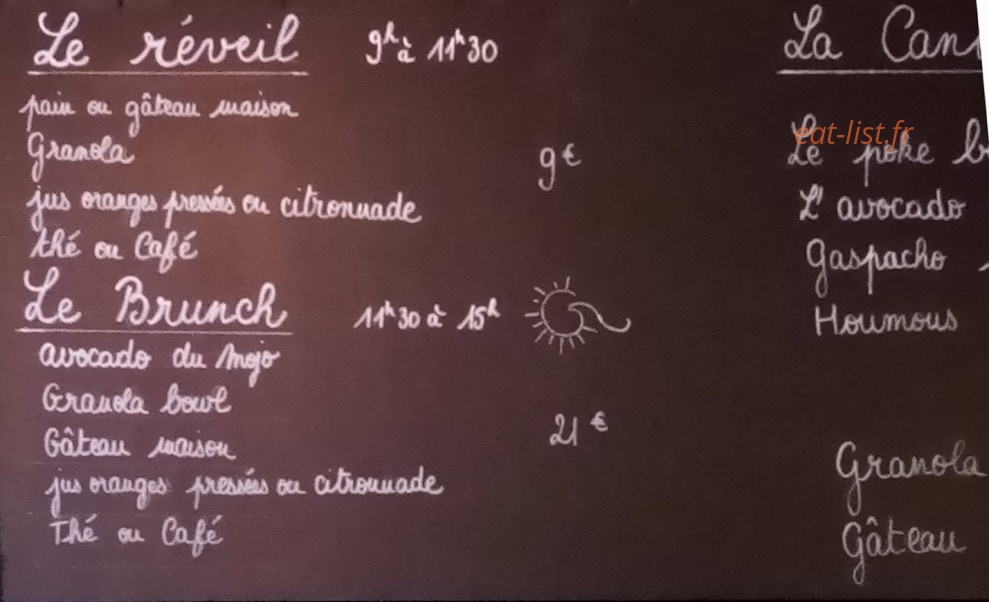 Le réveil 9h à 11h30
pain ou gâteau maison
Granola
9€
jus oranges pressées ou citronnade
thé ou Café
Le Brunch 11h30 à 15h
avocado du Mojo
Granola bowl
Gâteau maison
21 €
jus oranges pressées ou citronnade
Thé ou Café
La
eat-list.fr
Le poke
L'avocado
Gaspacho
Houmous
Granola
Gâteau